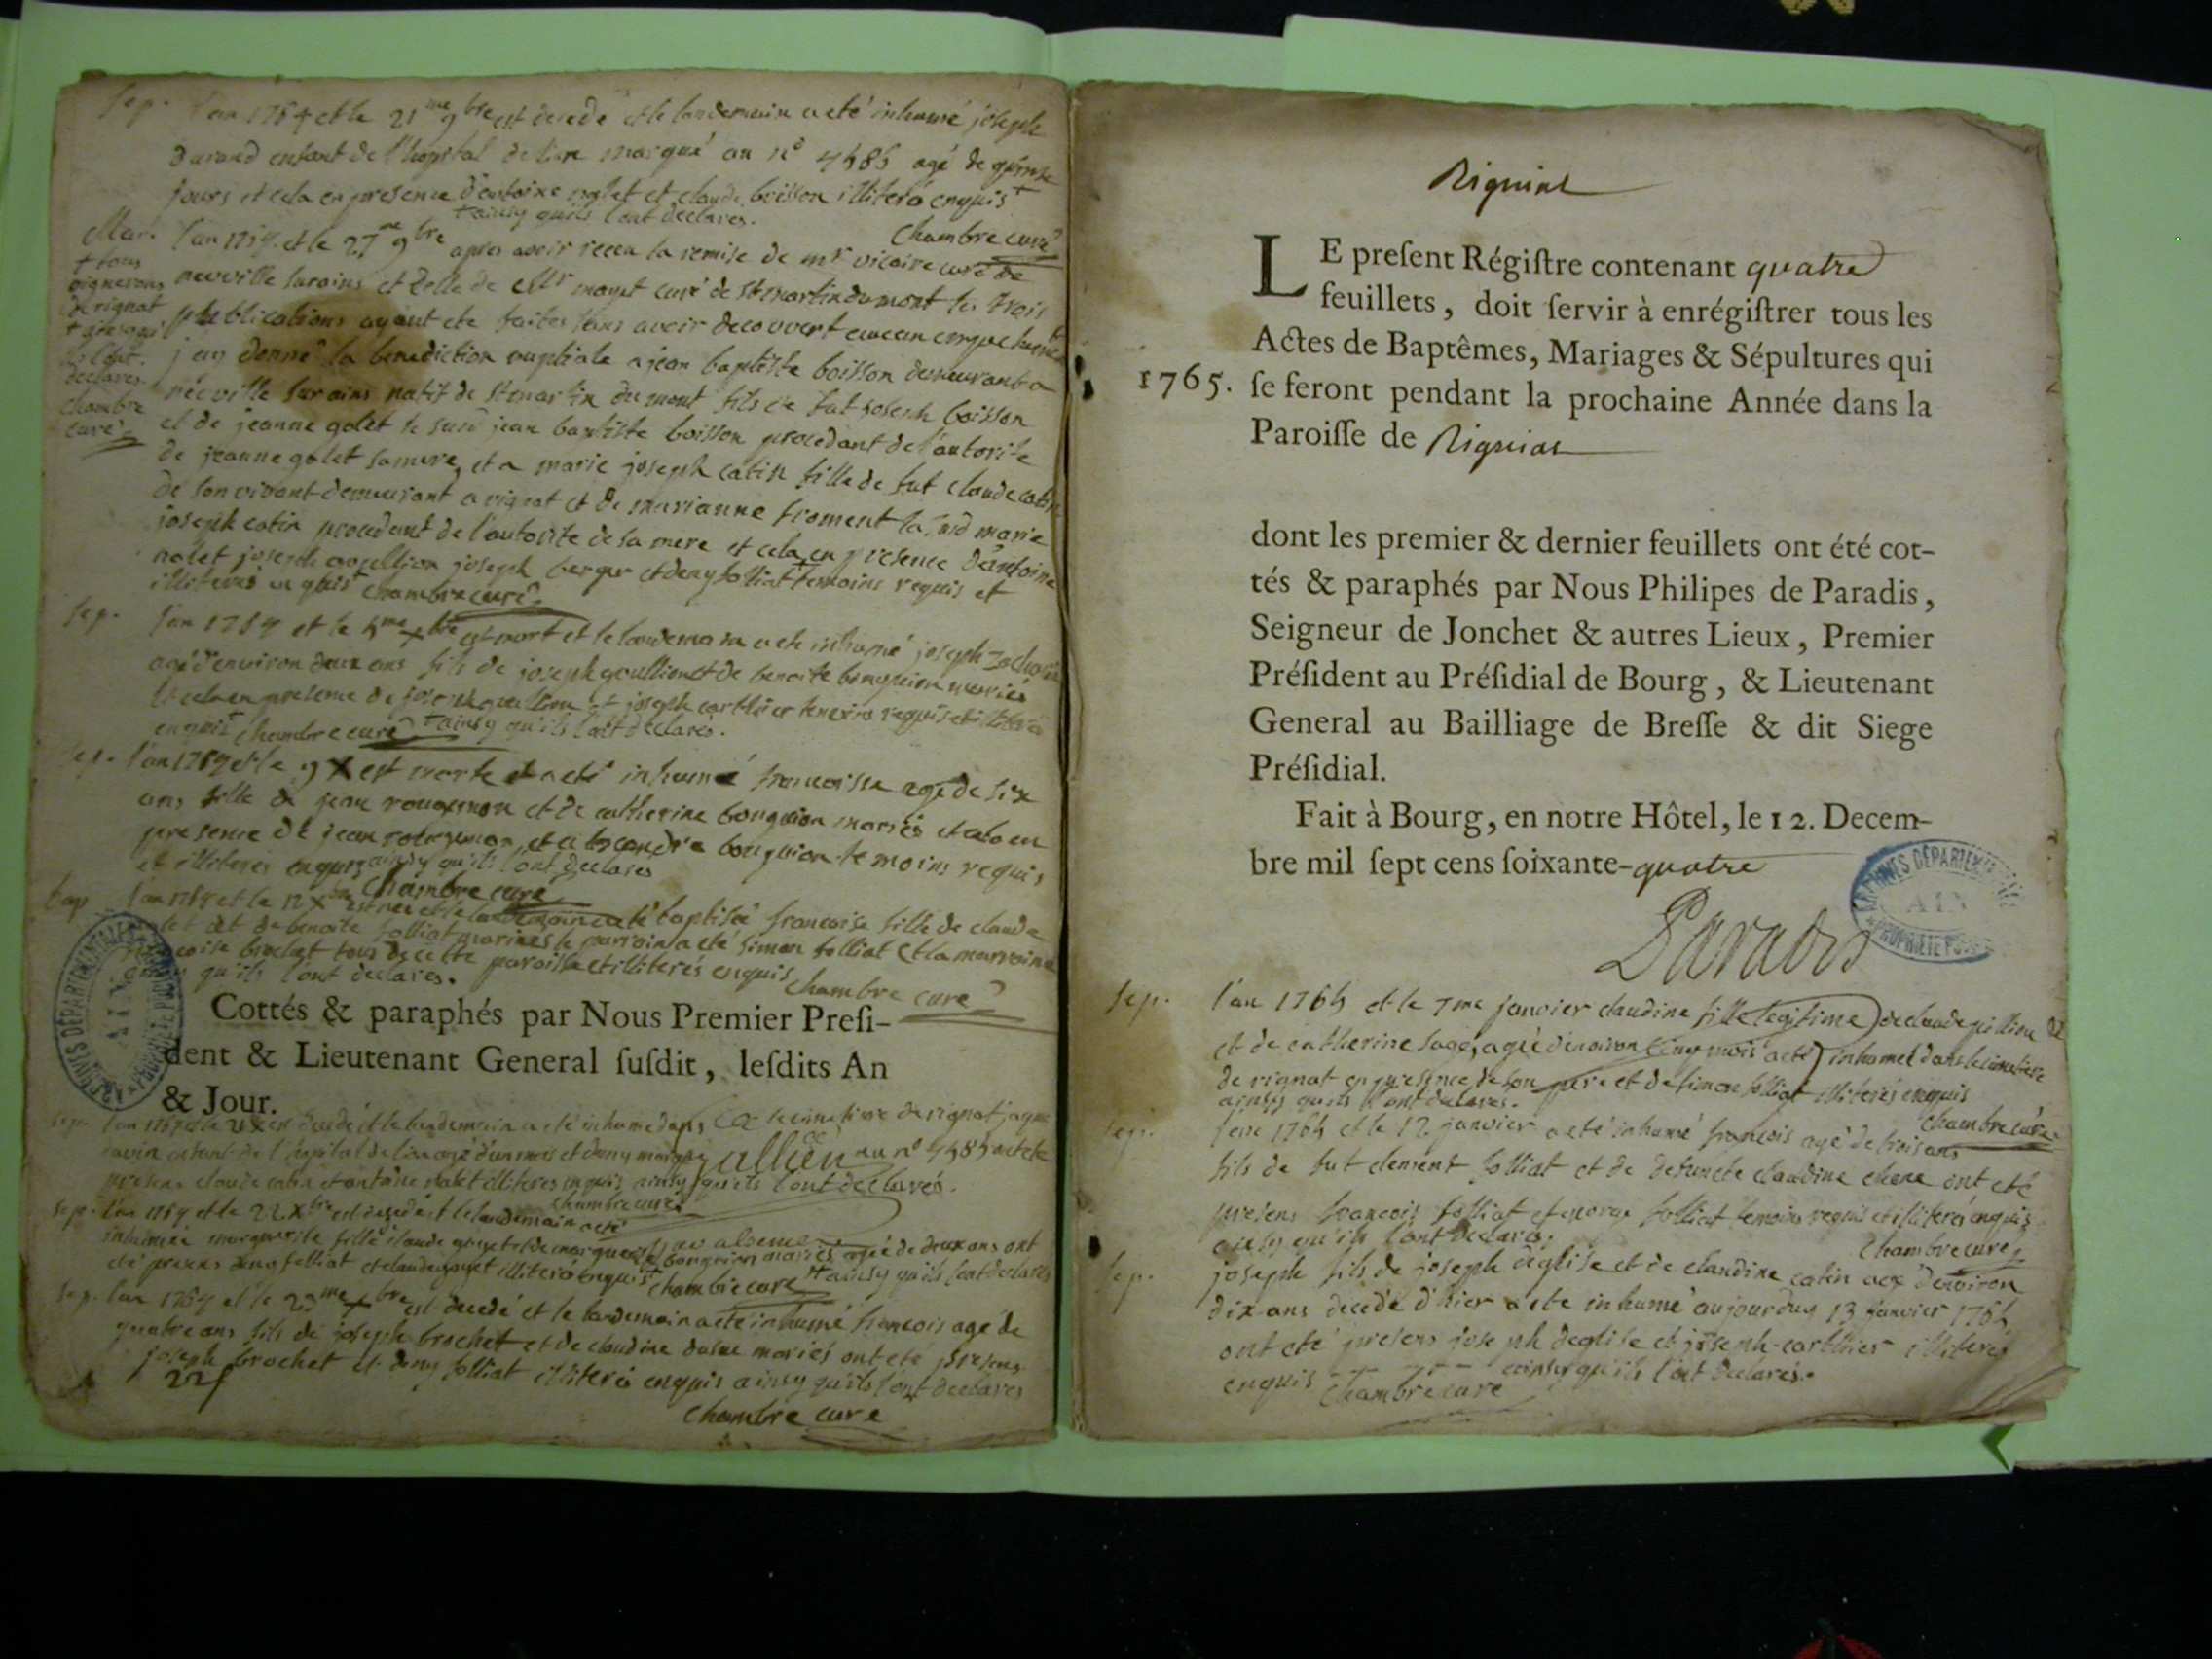 Sep. l'an 1764 et le 21me 9bre est decedé et le landemain a eté inhumé joseph
durand enfant de l'hopital de lion marqué au n° 4585 agé de quinze
jours et cela en presence d'antoine nolet et claude boisson illiterés enquis +
+ ainsy qu'ils l'ont declarés.
chambre curé
Mar. l'an 1764 et le 27me 9bre apres avoir receu la remise de mr vicaire curé de
neuville surains et celle de Mr mayet curé de st martin du mont les trois
publications ayant ete faites sans avoir decouvert aucun empechement
j'ay donné la benediction nuptiale a jean baptiste boisson demeurant a
neuville surains natif de st martin du mont fils de fut joseph boisson
et de jeanne golet le susd jean baptiste boisson procedant de l'autorite
de jeanne golet sa mere, et a marie joseph catin fille de fut claude catin
de son vivant demeurant a rignat et de marianne froment la susd marie
joseph catin procedant de l'autorite de sa mere et cela en presence d'antoine
nolet joseph goullion joseph berger et deny folliat + temoins requis et
illiterés enquis + chambre curé
+ tous
vignerons
de rignat
+ ainsy qu'
ils l'ont
declarés
chambre
curé
Sep. l'an 1764 et le 5me xbre est mort et le landemain a ete inhumé joseph
agé d'environ deux ans fils de joseph goullion et de benoite bouquion mariés
et cela en presence de joseph goullion et joseph carthier temoins requis et illiterés
enquis + chambre curé + ainsy qu'ils l'ont declarés.
Sep. l'an 1764 et le 9 X est morte et a eté inhumé francoisse agé de six
ans fille de jean rougemon et de catherine bouquion mariés et cela en
presence de jean rougemon et alexandre bouquion temoins requis
et illiterés enquis ainsy qu'ils l'ont declarés
chambre curé
bap l'an 1764 et le 12 xbre est née et le landemain a eté baptisée francoise fille de claude
et de benoite folliat mariées le parrain a eté simon folliat et la marraine
francoise brochet tous de cette paroisse et illiterés enquis
ainsy qu'ils l'ont declarés. chambre curé
Cottés & paraphés par Nous Premier Presi-
dent & Lieutenant General susdit, lesdits An
& Jour.
Sep. l'an 1764 et le 21 x est decedé et le landemain a eté inhumé dans le cimetiere de rignat jaque
enfant de l'hopital de lion agé d'un mois et demy marqué au n° 4485 ont ete
presens claude catin et antoine nolet illiteres enquis ainsy qu'ils l'ont declarés.
chambre curé
Sep. l'an 1764 et le 22 xbre est decedée et le landemain a eté
inhumée marguerite fille claude goyet et de marguerite bouquion mariés agée de deux ans ont
eté presens deny folliat et claude goyet illiterés enquis + chambre curé + ainsy qu'ils l'ont declarés
Sep. l'an 1764 et le 23me xbre est decedé et le landemain a eté inhumé francois agé de
quatre ans fils de joseph brochet et de claudine mariés ont eté presens
joseph brochet et deny folliat illiterés enquis ainsy qu'ils l'ont declarés
22
chambre curé
Rignat
LE present Régistre contenant quatre
feuillets, doit servir à enrégistrer tous les
Actes de Baptêmes, Mariages & Sépultures qui
1765. se feront pendant la prochaine Année dans la
Paroisse de Rignat
dont les premier & dernier feuillets ont été cot-
tés & paraphés par Nous Philipes de Paradis,
Seigneur de Jonchet & autres Lieux, Premier
Président au Présidial de Bourg, & Lieutenant
General au Bailliage de Bresse & dit Siege
Présidial.
Fait à Bourg, en notre Hôtel, le 12. Decem-
bre mil sept cens soixante-quatre
Paradis
Sep. l'an 1765 et le 7me janvier claudine fille legitime de claude
et de catherine sage, agée d'environ cinq mois a eté inhumée dans le cimetiere
de rignat en presence de son pere et de simon folliat illiterés enquis
ainsy qu'ils l'ont declarés.
chambre curé
Sep. l'an 1765 et le 12 janvier a eté inhumé francois agé de trois ans
fils de fut clement folliat et de defuncte claudine chene ont eté
presens francois folliat et george folliat temoins requis et illiterés enquis
ainsy qu'ils l'ont declarés. chambre curé
Sep. joseph fils de joseph deglise et de claudine catin agé d'environ
dix ans decedé d'hier a ete inhumé aujourduy 13 janvier 1765
ont eté presens joseph deglise et joseph carthier illiterés
enquis ainsy qu'ils l'ont declarés.
chambre curé